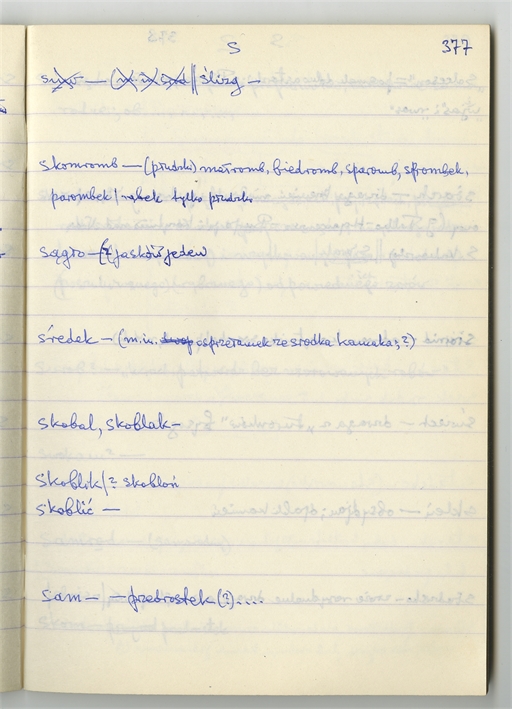 S 377
— ślizg —
skomromb — (przdrk) matromb, biedromb, sparomb, stombek,
parombek / rąbek tylko przdrk
sągro — (z) jasków jeden
średek — (m.in. ze środka kamuka; ?)
skobal, skoblak —
skoblik / ? skobloń
skoblić —
sam — — przedrostek (?) ....